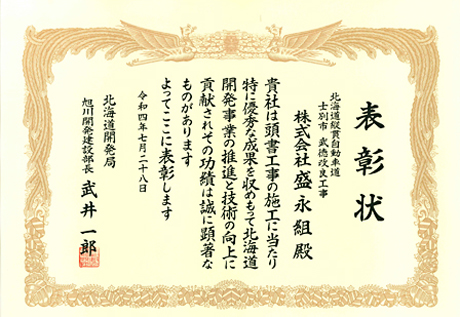 表彰状
北海道縦貫自動車道
士別市 武徳改良工事
株式会社 盛永組 殿
貴社は頭書工事の施工に当たり
特に優秀な成果を収めもって北海道
開発事業の推進と技術の向上に
貢献されその功績は誠に顕著な
ものがあります
よってここに表彰します
令和四年七月二十八日
北海道開発局
旭川開発建設部長 武井一郎